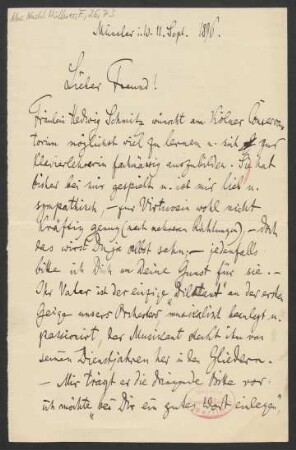 Münster i. W. 11. Sept. 1896.
Lieber Freund!
Fräulein Hedwig Schmitz wünscht am Kölner Conserva-
torium möglichst viel zu lernen u. sich zur
Klavierlehrerin fähig auszubilden. Sie hat
bisher bei mir gespielt u. ist mir lieb u.
sympathisch, – zur Virtuosin wohl nicht
kräftig genug (nach mehreren Richtungen) – doch
das wirst Du ja selbst sehn; – jedenfalls
bitte ich Dich um Deine Gunst für sie. –
Ihr Vater ist der einzige „Dilettant" an der ersten
Geige unseres Orchesters musikalisch beanlagt u.
passionirt, der Musikant steckt ihm von
seinen Dienstjahren her in den Gliedern. –
– Mir trägt er die dringende Bitte vor:
ich möchte „bei Dir ein gutes Wort einlegen"